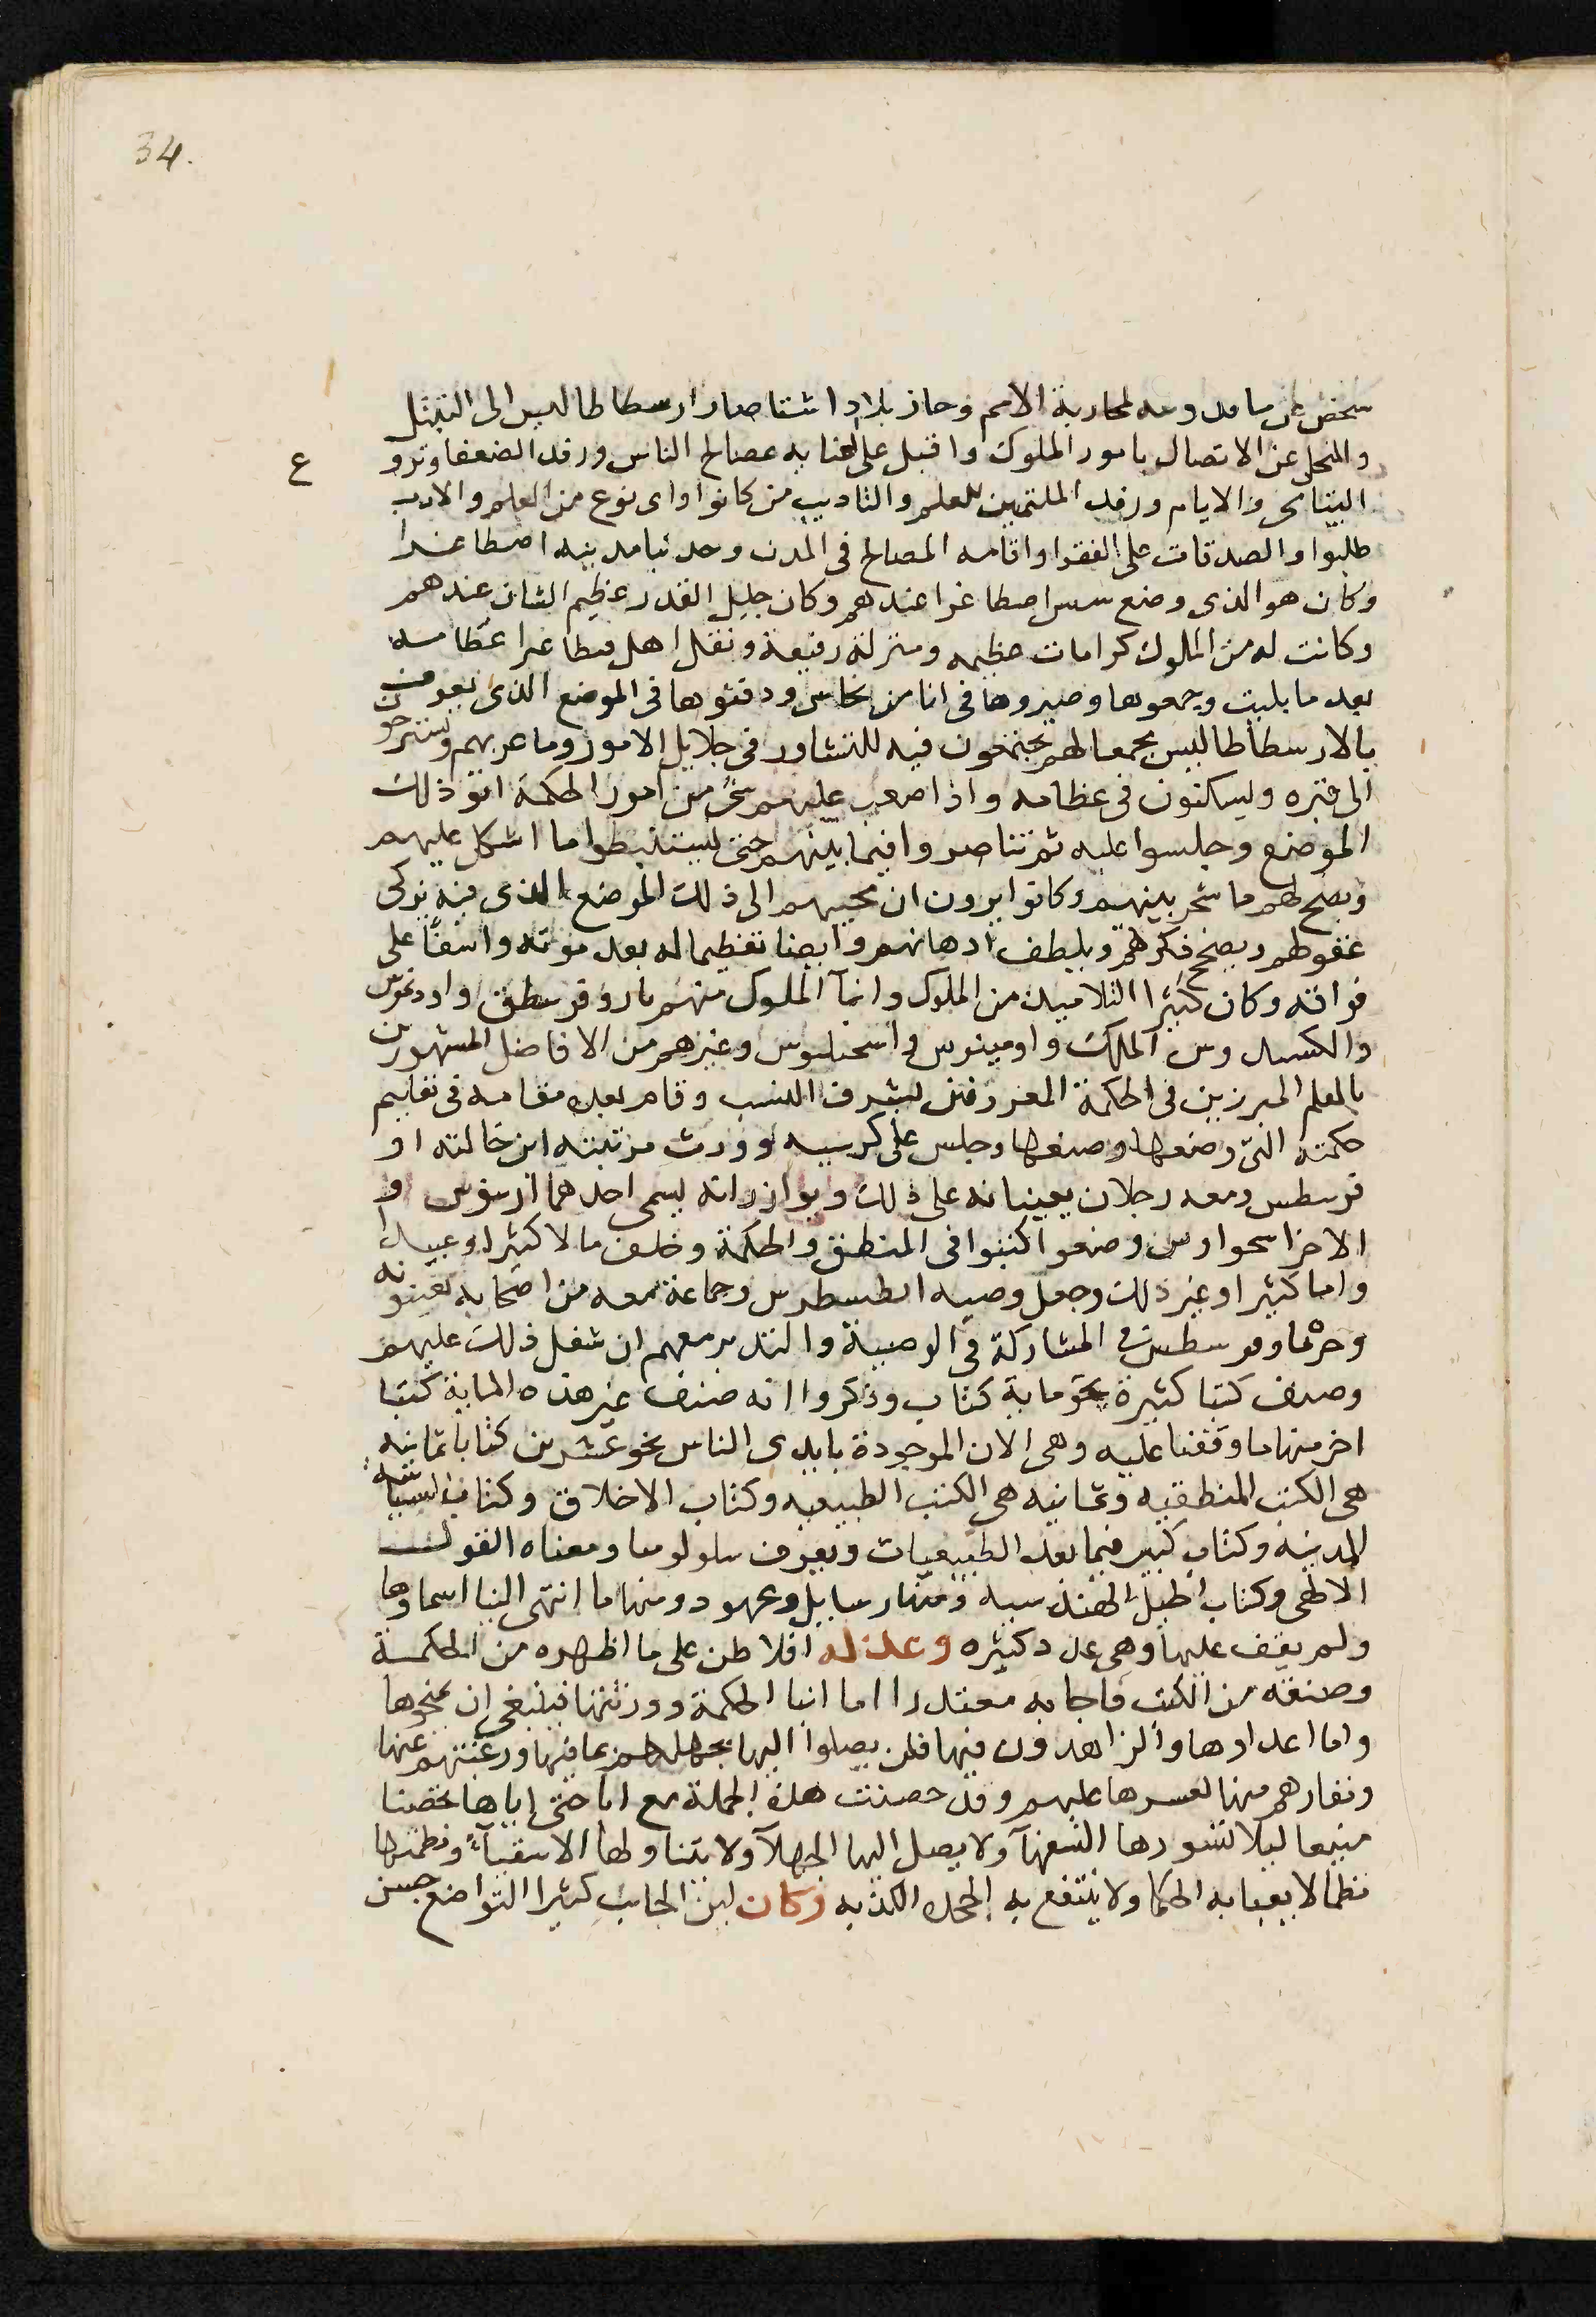 34.
شخص عن ماقدونيه لمحاربة الامم وحاز بلاد اشيا صار ارسطاطاليس الى التبتل
والتخلى عن الاتصال بامور الملوك واقبل على العنايه بمصالح الناس ورفد الضعفا وتزو
ع
اليتامى والايام ورفد الملتمسين للعلم والتاديب من كانوا واى نوع من العلم والادب
طلبوا والصدقات على الفقرا واقامه المصالح فى المدن وجدد بنا مدينه اصطاغيرا
وكان هو الذى وضع سنن اصطاغرا عندهم وكان جليل القدر عظيم الشان عندهم
وكانت له من الملوك كرامات عظيمه ومنزله رفيعة ونقل اهل اصطاغرا عظامه
بعد ما بليت وجمعوها وصيروها فى انا من نحاس ودفنوها فى الموضع الذى يعرف
بالارسطاطاليسى مجمعا لهم يجتمعون فيه للتشاور فى جلايل الامور وما حزبهم ويستريحون
الى قبره ويسكنون فى عظامه واذا صعب عليهم شى من امور الحكمة اتو ذلك
الموضع وجلسوا عليه ثم تناصروا فيما بينهم حتى يستنبطوا ما اشكل عليهم
ويصح لهم ما شجر بينهم وكانوا يرون ان مجيهم الى ذلك الموضع الذى فيه يزكى
عقولهم ويصحح فكرهم ويلطف اذهانهم وايضا تعظيما له بعد موته واسفاً على
فراقه وكان كثيرا التلاميذ من الملوك وابنآ الملوك منهم ثاروفرسطس واوديموس
والكسندروس الملك واومينوس واسخيلوس وغيرهم من الافاضل المشهورين
بالعلم المبرزين فى الحكمة المعروفين بشرف النسب وقام بعده مقامه فى تعليم
حكمته التى وضعها وصنفها وجلس على كرسيه وورث مرتبته ابن خالته او
فرسطس ومعه رجلان يعينانه على ذلك ويوازرانه يسمى احدهما ارميوس و
الاخر اسخولوس وصنفوا كتبوا فى المنطق والحكمة وخلف مالا كثيرا وعبيدا
واما كثيرا وغير ذلك وجعل وصيه انطيبطرس وجماعة معه من اصحابه يعينونه
وخير ثاوفرسطس فى المشاركة فى الوصية والتدبير معهم ان شغل ذلك عليهم
وصنف كتبا كثيرة نحو ماية كتاب وذكروا انه صنف غير هذه الماية كتبا
اخر منها ما وقفنا عليه وهى الان الموجودة بايدى الناس نحو عشرين كتابا ثمانيه
هى الكتب المنطقيه وثمانيه هى الكتب الطبيعيه وكتاب الاخلاق وكتاب السياسه
المدنيه وكتاب كبير فيما بعد الطبيعيات ويعرف بثاولوجيا ومعناه القول
الالهى وكتاب الحيل الهندسيه ومنها رسايل وعهود ومنها ما انتهى الينا اسماوها
ولم يقف عليها وهى عدد كثيره وعذله افلاطن على ما اظهره من الحكمة
وصنفه من الكتب فاجابه معتذرا اما ابنا الحكمة وورثتها فينبغى ان يمنحوها
واما اعداوها والزاهدون فيها فلن يصلوا اليها بجهلهم عما فيها ورغبتهم عنها
ونفارهم منها لعسرها عليهم وقد حصنت هذه الحكمة مع اباحتى اياها تحصينا
منيعا ليلا تتسورها السفهآ ولا يصل اليها الجهلآ ولا يتناولها الاشقيآء ونظمتها
نظما لا يعيا به الحكما ولا ينتفع به الجحده الكذبه وكان لين الجانب كثيرا التواضع حسن